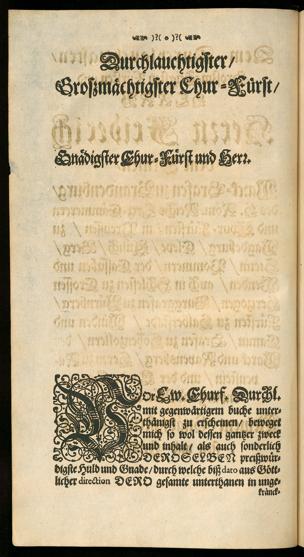 )?( o )?(
Durchlauchtigster/
Großmächtigster Chur-Fürst/
Gnädigster Chur-Fürst und Herr.
Vor Ew. Churf. Durchl.
mit gegenwärtigem buche unter-
thänigst zu erscheinen/ beweget
mich so wol dessen gantzer zweck
und inhalt/ als auch sonderlich
DEROSELBEN preißwür-
digste Huld und Gnade/ durch welche biß dato aus Gött-
licher direction DERO gesamte unterthanen in unge-
kränck-